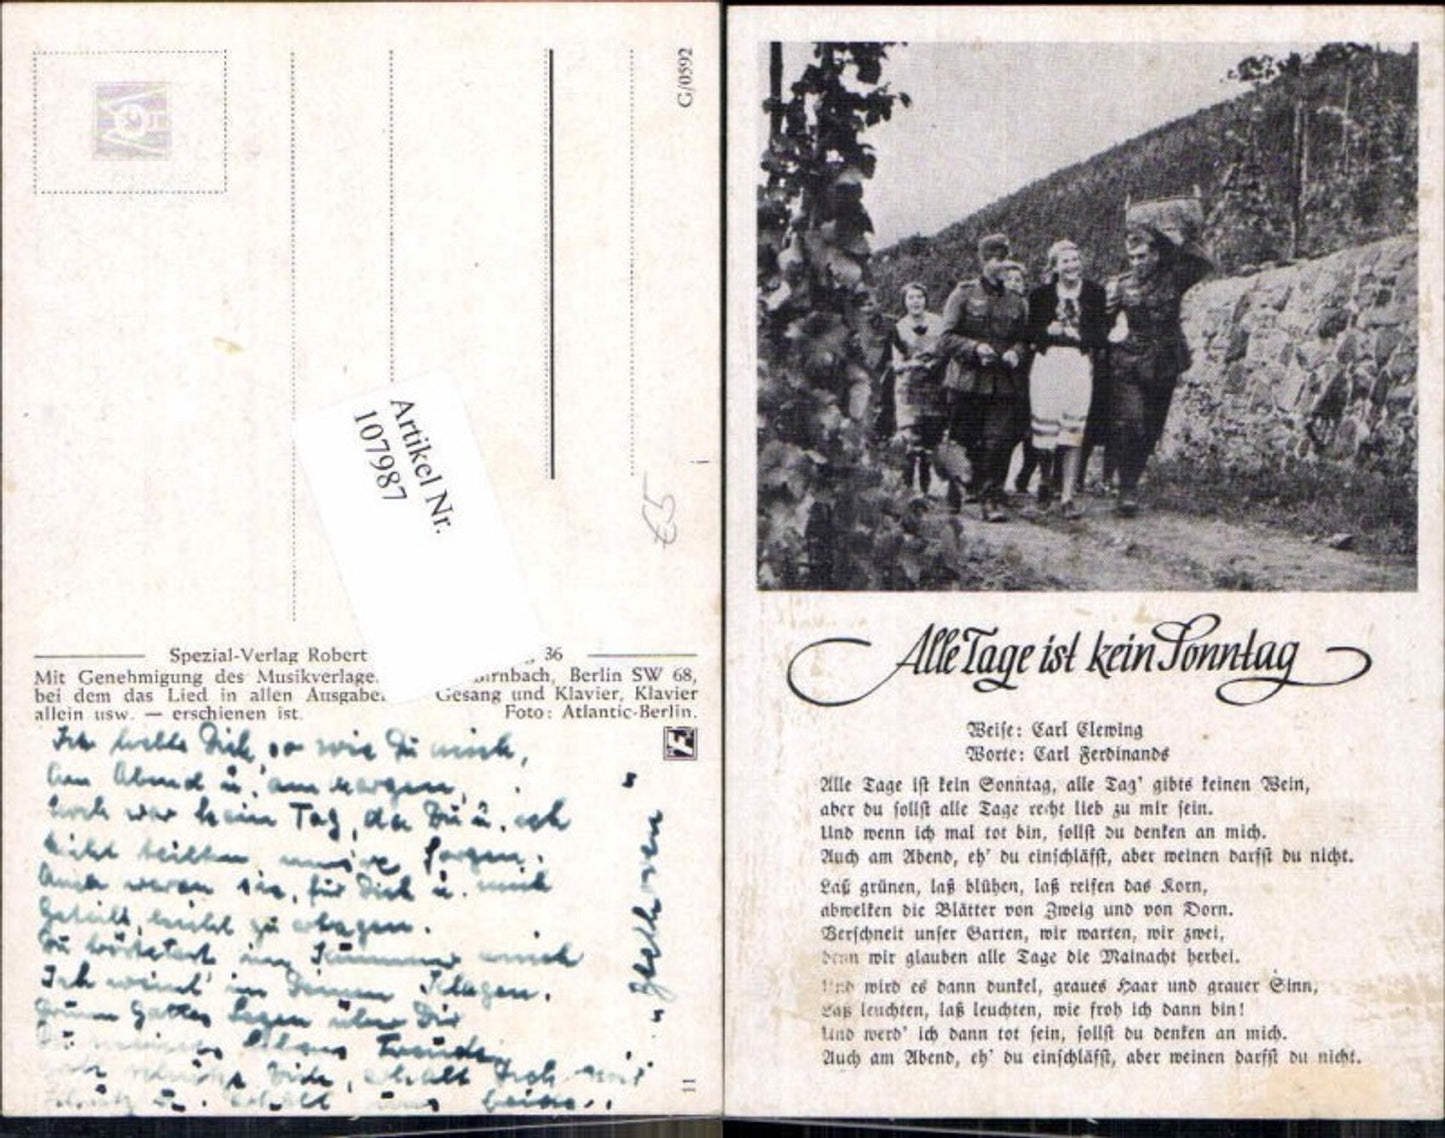 G/0592
Artikel Nr.
107987
€5
Spezial-Verlag Robert 36
Mit Genehmigung des Musikverlage Birnbach, Berlin SW 68,
bei dem das Lied in allen Ausgabe Gesang und Klavier, Klavier
allein usw. — erschienen ist. Foto: Atlantic-Berlin.
Ich liebte Dich, so wie Du mich,
Am Abend u. am Morgen,
Noch war kein Tag, da Du u. ich
Nicht teilten unsre Sorgen.
Auch waren sie, für Dich u. mich
Geteilt, leicht zu ertragen.
Du tröstetest im Kummer mich
Ich weint' in Deinen Klagen.
Drum Gottes Segen über Dir
Du meines Lebens Freude,
Gott schütze Dich, erhalt Dich mir
Schütz u. erhalt uns beide.
"Beethoven"
11
Alle Tage ist kein Sonntag
Weise: Carl Clewing
Worte: Carl Ferdinands
Alle Tage ist kein Sonntag, alle Tag' gibts keinen Wein,
aber du sollst alle Tage recht lieb zu mir sein.
Und wenn ich mal tot bin, sollst du denken an mich.
Auch am Abend, eh' du einschläfst, aber weinen darfst du nicht.
Laß grünen, laß blühen, laß reifen das Korn,
abwelken die Blätter von Zweig und von Dorn.
Verschneit unser Garten, wir warten, wir zwei,
denn wir glauben alle Tage die Mainacht herbei.
Und wird es dann dunkel, graues Haar und grauer Sinn,
Laß leuchten, laß leuchten, wie froh ich dann bin!
Und werd' ich dann tot sein, sollst du denken an mich.
Auch am Abend, eh' du einschläfst, aber weinen darfst du nicht.